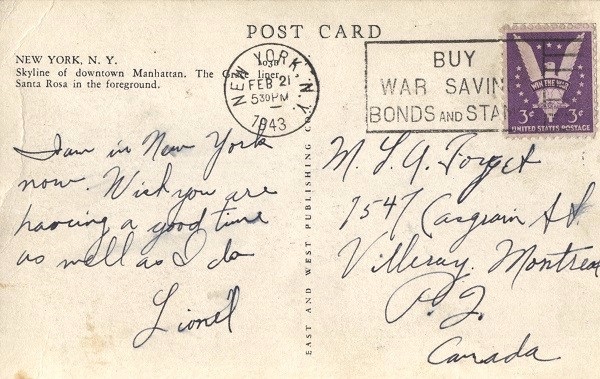 POST CARD
NEW YORK, N. Y.
Skyline of downtown Manhattan. The Grace liner
Santa Rosa in the foreground.
NEW YORK, N.Y.
FEB 21
530PM
1943
BUY
WAR SAVIN
BONDS AND STA
WIN THE WAR
3¢ 3¢
UNITED STATES POSTAGE
I am in New York
now. Wish you are
having a good time
as well as I do
Lionel
EAST AND WEST PUBLISHING CO.
M. L. A. Forget
7547 Casgrain St
Villeray, Montreal
P. Q.
Canada